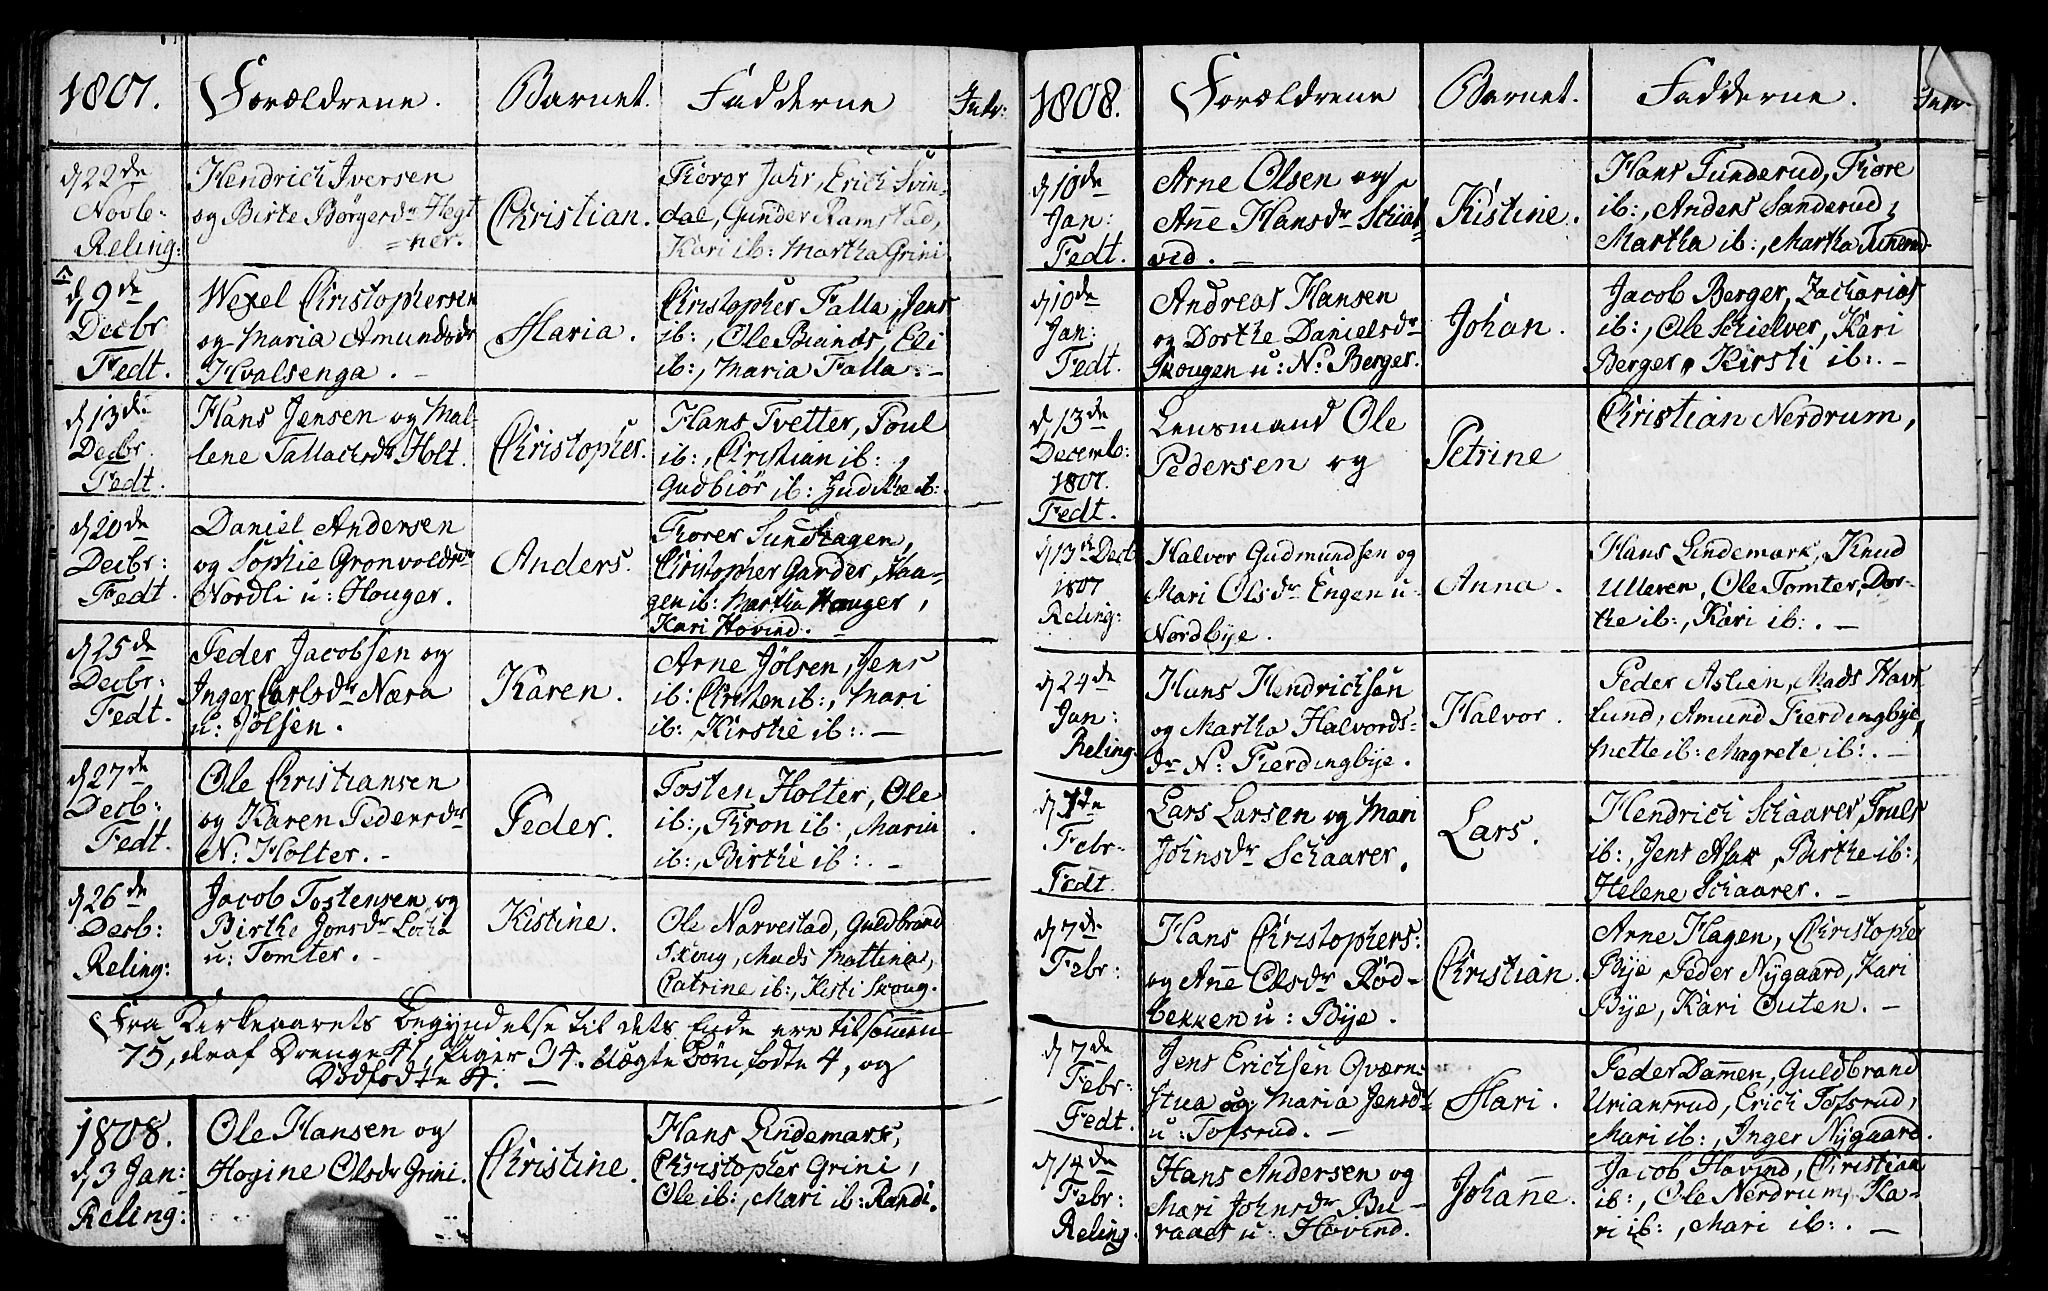 1807. Forældrene. Barnet. Fadderne Intr:
d 22de Novbe: Reling:
Hendrich Iversen
og Birte Børgersdr Hegt
=ner.
Christian.
Torer Jahr, Erich Svin-
dal, Gunder Ramstad,
Kari ib: Martha Grini
d 9de Decbr Fedt.
Wexel Christophersen
og Maria Amundsdr
Hvalsenga. -
Maria.
Christopher Falla, Jens
ib:, Ole Brands, Eli
ib:, Maria Falla. -
d 13de Decbr. Fedt.
Hans Jensen og Mal-
lene Tallachsdr Holt.
Christopher.
Hans Tvetter, Poul
ib:, Christian ib:,
Gudbiør ib:
d 20de Decbr: Fedt.
Daniel Andersen
og Sophie Gronvoldsdr
Nordli u: Houger.
Anders.
Torer Sundhagen,
Christopher Garder, Haa-
gen ib: Martha Houger,
Kari Hovind. -
d 25de Decbr: Fedt.
Peder Jacobsen og
Inger Carlsdr Næra
u: Jølsen.
Karen.
Arne Jølsen, Jens
ib: Christen ib:, Mari
ib: Kirstie ib:. -
d 27de Decb: Fedt.
Ole Christiansen
og Karen Pedersdr
N: Holter. -
Peder.
Tosten Holter, Ole
ib:, Tron ib:, Maria
ib:, Birthe ib:. -
d 26de Desb: Reling:
Jacob Tostensen og
Birthe Jonsdr Løcha
u: Tomter. -
Kistine.
Ole Narvestad, Guldbrand
Skoug, Mads Mattina,
Catrine ib:, Kisti Skoug.
Fra Kirkeaarets Begyndelse til dets Ende ere tilsammen
75, deraf Drenge 41, Piger 34. Uægte Børn fødte 4, og
Dødfødte 4. -
1808. d 3 Jan: Reling:
Ole Hansen og
Hogine Olsdr Grini.
Christine.
Hans Lindemark,
Christopher Grini,
Ole ib:, Mari ib: Randi.
1808. Forældrene Barnet. Fadderne. Intr.
d 10de Jan: Fedt.
Arne Olsen og
Anne Hansdr Schiat-
ved. -
Kistine.
Hans Tunderud, Tore
ib:, Anders Sanderud,
Martha ib:, Martha Tunerud
d 10de Jan: Fedt.
Andreas Hansen
og Dorthe Danielsdr
Skougen u: N: Berger.
Johan.
Jacob Berger, Zacharias
ib:, Ole Schielver, Kari
Berger, Kirsti ib:. -
d 13de Decemb: 1807. Fedt.
Lensmand Ole
Pedersen og
Petrine
Christian Nerdrum,
d 13de Decb 1807 Reling:
Halvor Gudmundsen og
Mari Olsdr Engen u:
Nordbye.
Anna.
Hans Lindemark, Knud
Ulleren, Ole Tomter, Dor-
the ib:, Kari ib:. -
d 24de Jan: Reling:
Hans Hendrichsen
og Martha Halvords-
dr N: Fierdingbye.
Halvor.
Peder Aslien, Mads Havr
lund, Amund Fierdingbye,
Mette ib: Magrete ib:. -
d 1te Febr- Fedt.
Lars Larsen og Mari
Johnsdr Schaarer.
Lars.
Hendrich Schaarer, Truls
ib:, Jens Asak, Birthe ib:,
Helene Schaarer. -
d 7de Febr:
Hans Christophers:
og Anne Olsdr Rød-
bekken u: Bye.
Christian.
Arne Hagen, Christopher
Bye, Peder Nygaard, Kari
Bye, Kari Outen. -
d 7de Febr: Fedt.
Jens Erichsen Qværn-
stua og Maria Jensdr
u: Tofsrud. -
Mari.
Peder Damen, Guldbrand
Uriansrud, Erich Tofsrud,
Mari ib:, Inger Nygaard.
d 14de Febr: Reling.
Hans Andersen og
Mari Johnsdr Bu-
raaet u: Hovind.
Johanne.
Jacob Hovind, Christian
ib:, Ole Nerdrum, Ka-
ri ib:, Mari ib:. -